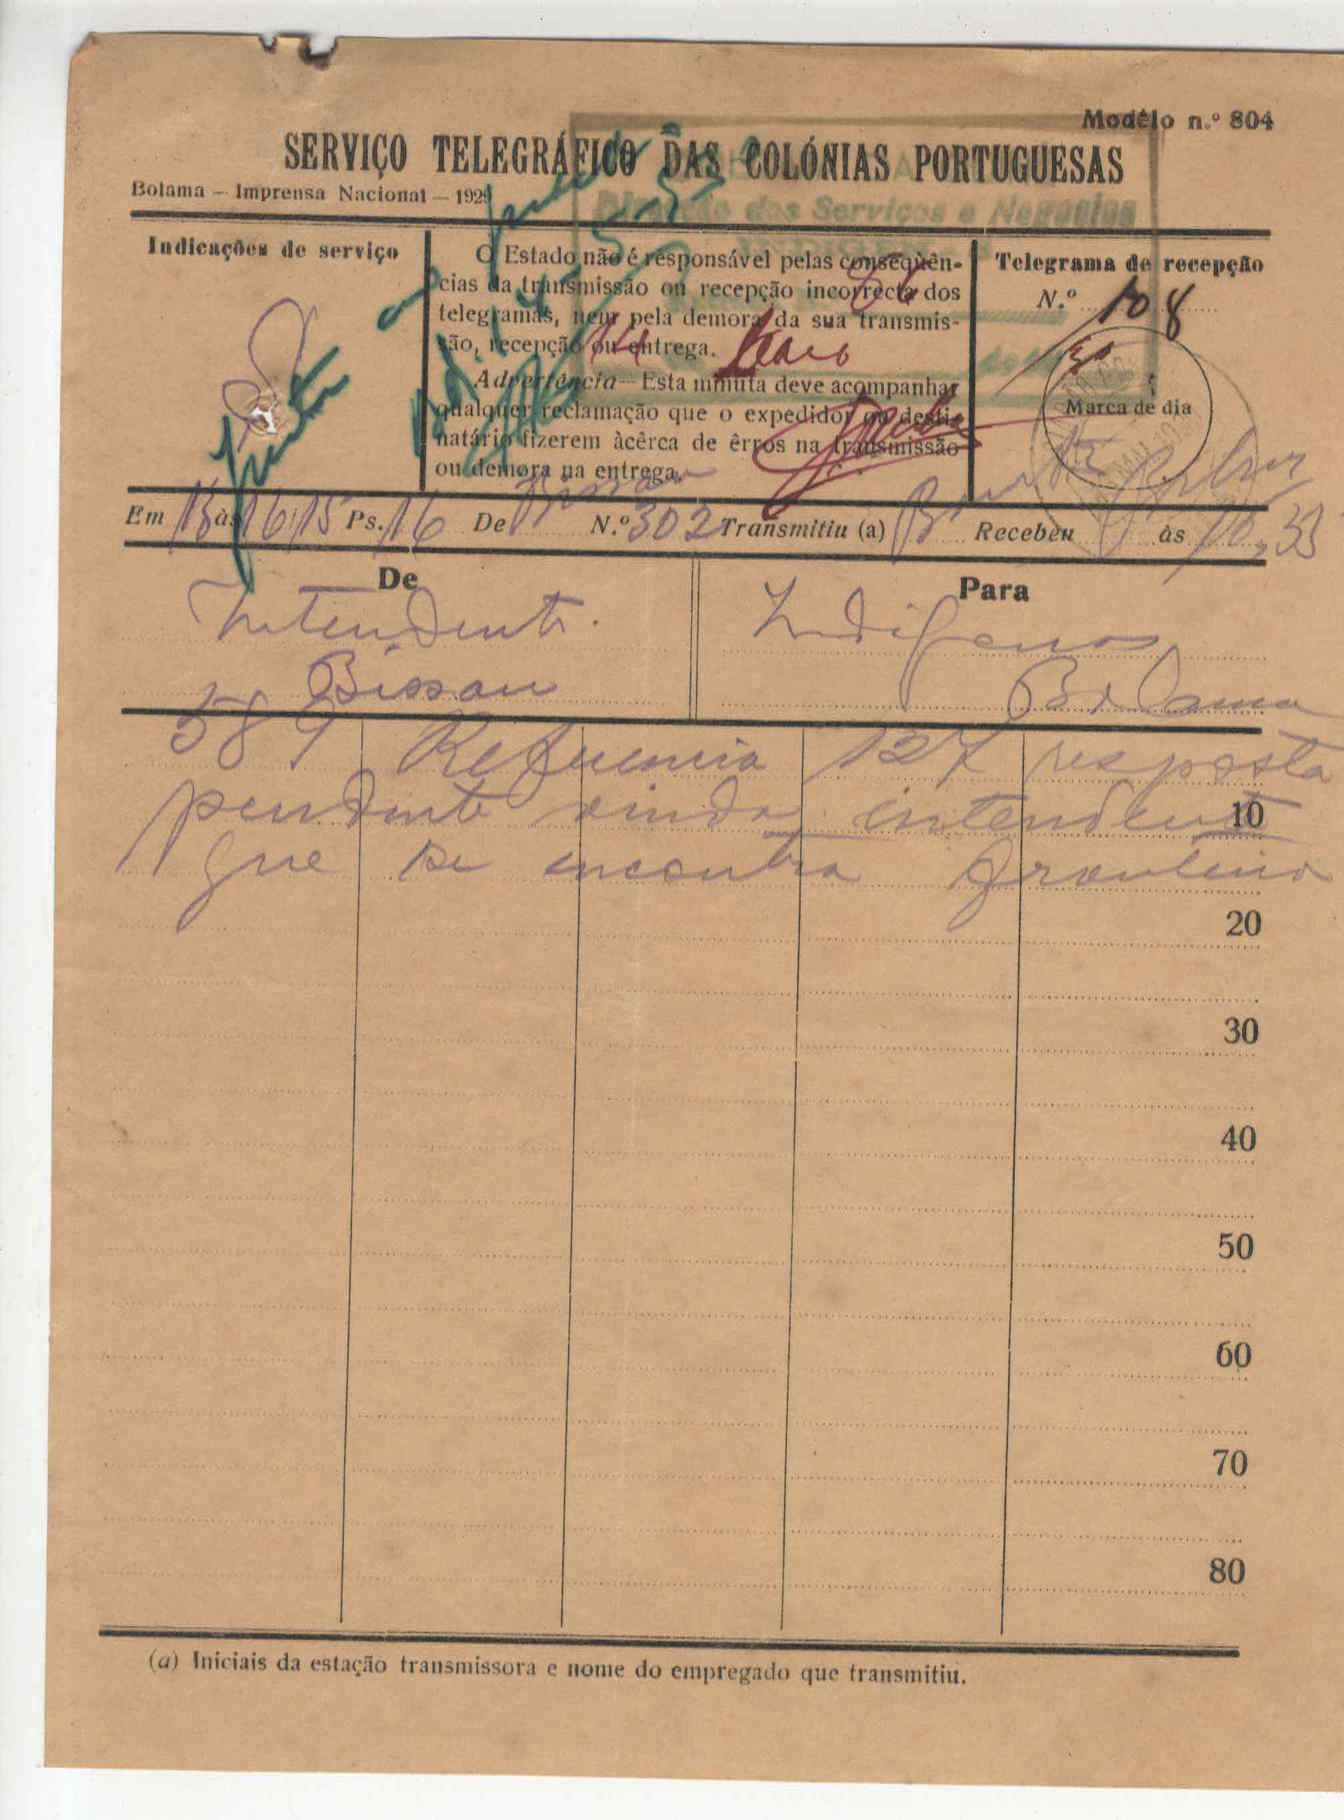 Modêlo n.º 804
SERVIÇO TELEGRÁFICO DAS COLÓNIAS PORTUGUESAS
Bolama — Imprensa Nacional — 1929
Direcção dos Serviços e Negócios
Indicações de serviço
O Estado não é responsável pelas conseqüên-
cias da transmissão ou recepção incorrecta dos
telegramas, nem pela demora da sua transmis-
são, recepção ou entrega.
Advertência—Esta minuta deve acompanhar
qualquer reclamação que o expedidor ou desti-
natário fizerem àcêrca de êrros na transmissão
ou demora na entrega.
14 Maio
Telegrama de recepção
N.º 108
Marca de dia
Em 13 às 16,15 Ps. 16 De Bissau N.º 302 Transmitiu (a) Recebeu às
De
Intendente
Bissau
Para
Indigenas
Bolama
589 Referencia 127 resposta
pendente vinda intendente
que se encontra
10
20
30
40
50
60
70
80
(a) Iniciais da estação transmissora e nome do empregado que transmitiu.